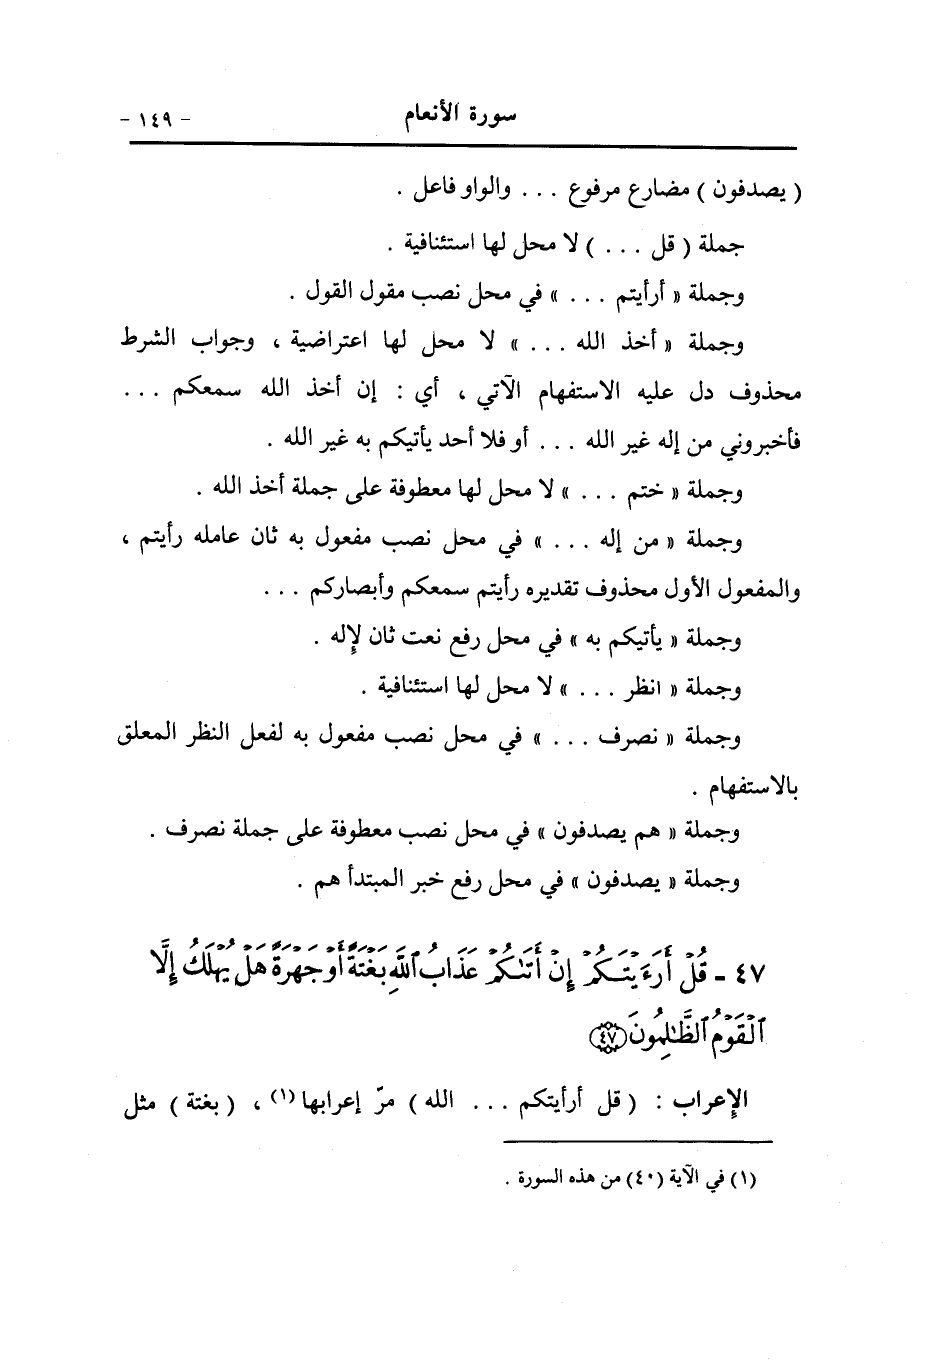 سورة الأنعام - ١٤٩ -
( يصدفون ) مضارع مرفوع . . . والواو فاعل .
جملة ( قل . . . ) لا محل لها استئنافية .
وجملة « أرأيتم . . . » في محل نصب مقول القول .
وجملة « أخذ الله . . . » لا محل لها اعتراضية ، وجواب الشرط
محذوف دل عليه الاستفهام الآتي ، أي : إن أخذ الله سمعكم . . .
فأخبروني من إله غير الله . . . أو فلا أحد يأتيكم به غير الله .
وجملة « ختم . . . » لا محل لها معطوفة على جملة أخذ الله .
وجملة « من إله . . . » في محل نصب مفعول به ثان عامله رأيتم ،
والمفعول الأول محذوف تقديره رأيتم سمعكم وأبصاركم . . .
وجملة « يأتيكم به » في محل رفع نعت ثان لإله .
وجملة « انظر . . . » لا محل لها استئنافية .
وجملة « نصرف . . . » في محل نصب مفعول به لفعل النظر المعلق
بالاستفهام .
وجملة « هم يصدفون » في محل نصب معطوفة على جملة نصرف .
وجملة « يصدفون » في محل رفع خبر المبتدأ هم .
٤٧ - قُلْ أَرَءَيْتَكُمْ إِنْ أَتَىٰكُمْ عَذَابُ ٱللَّهِ بَغْتَةً أَوْ جَهْرَةً هَلْ يُهْلَكُ إِلَّا
ٱلْقَوْمُ ٱلظَّـٰلِمُونَ ٤٧
الإعراب : ( قل أرأيتكم . . . الله ) مرّ إعرابها (١) ، ( بغتة ) مثل
(١) في الآية (٤٠) من هذه السورة .